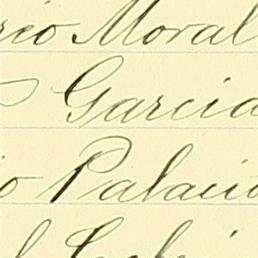 rio Moral
Garcia
io Palacio